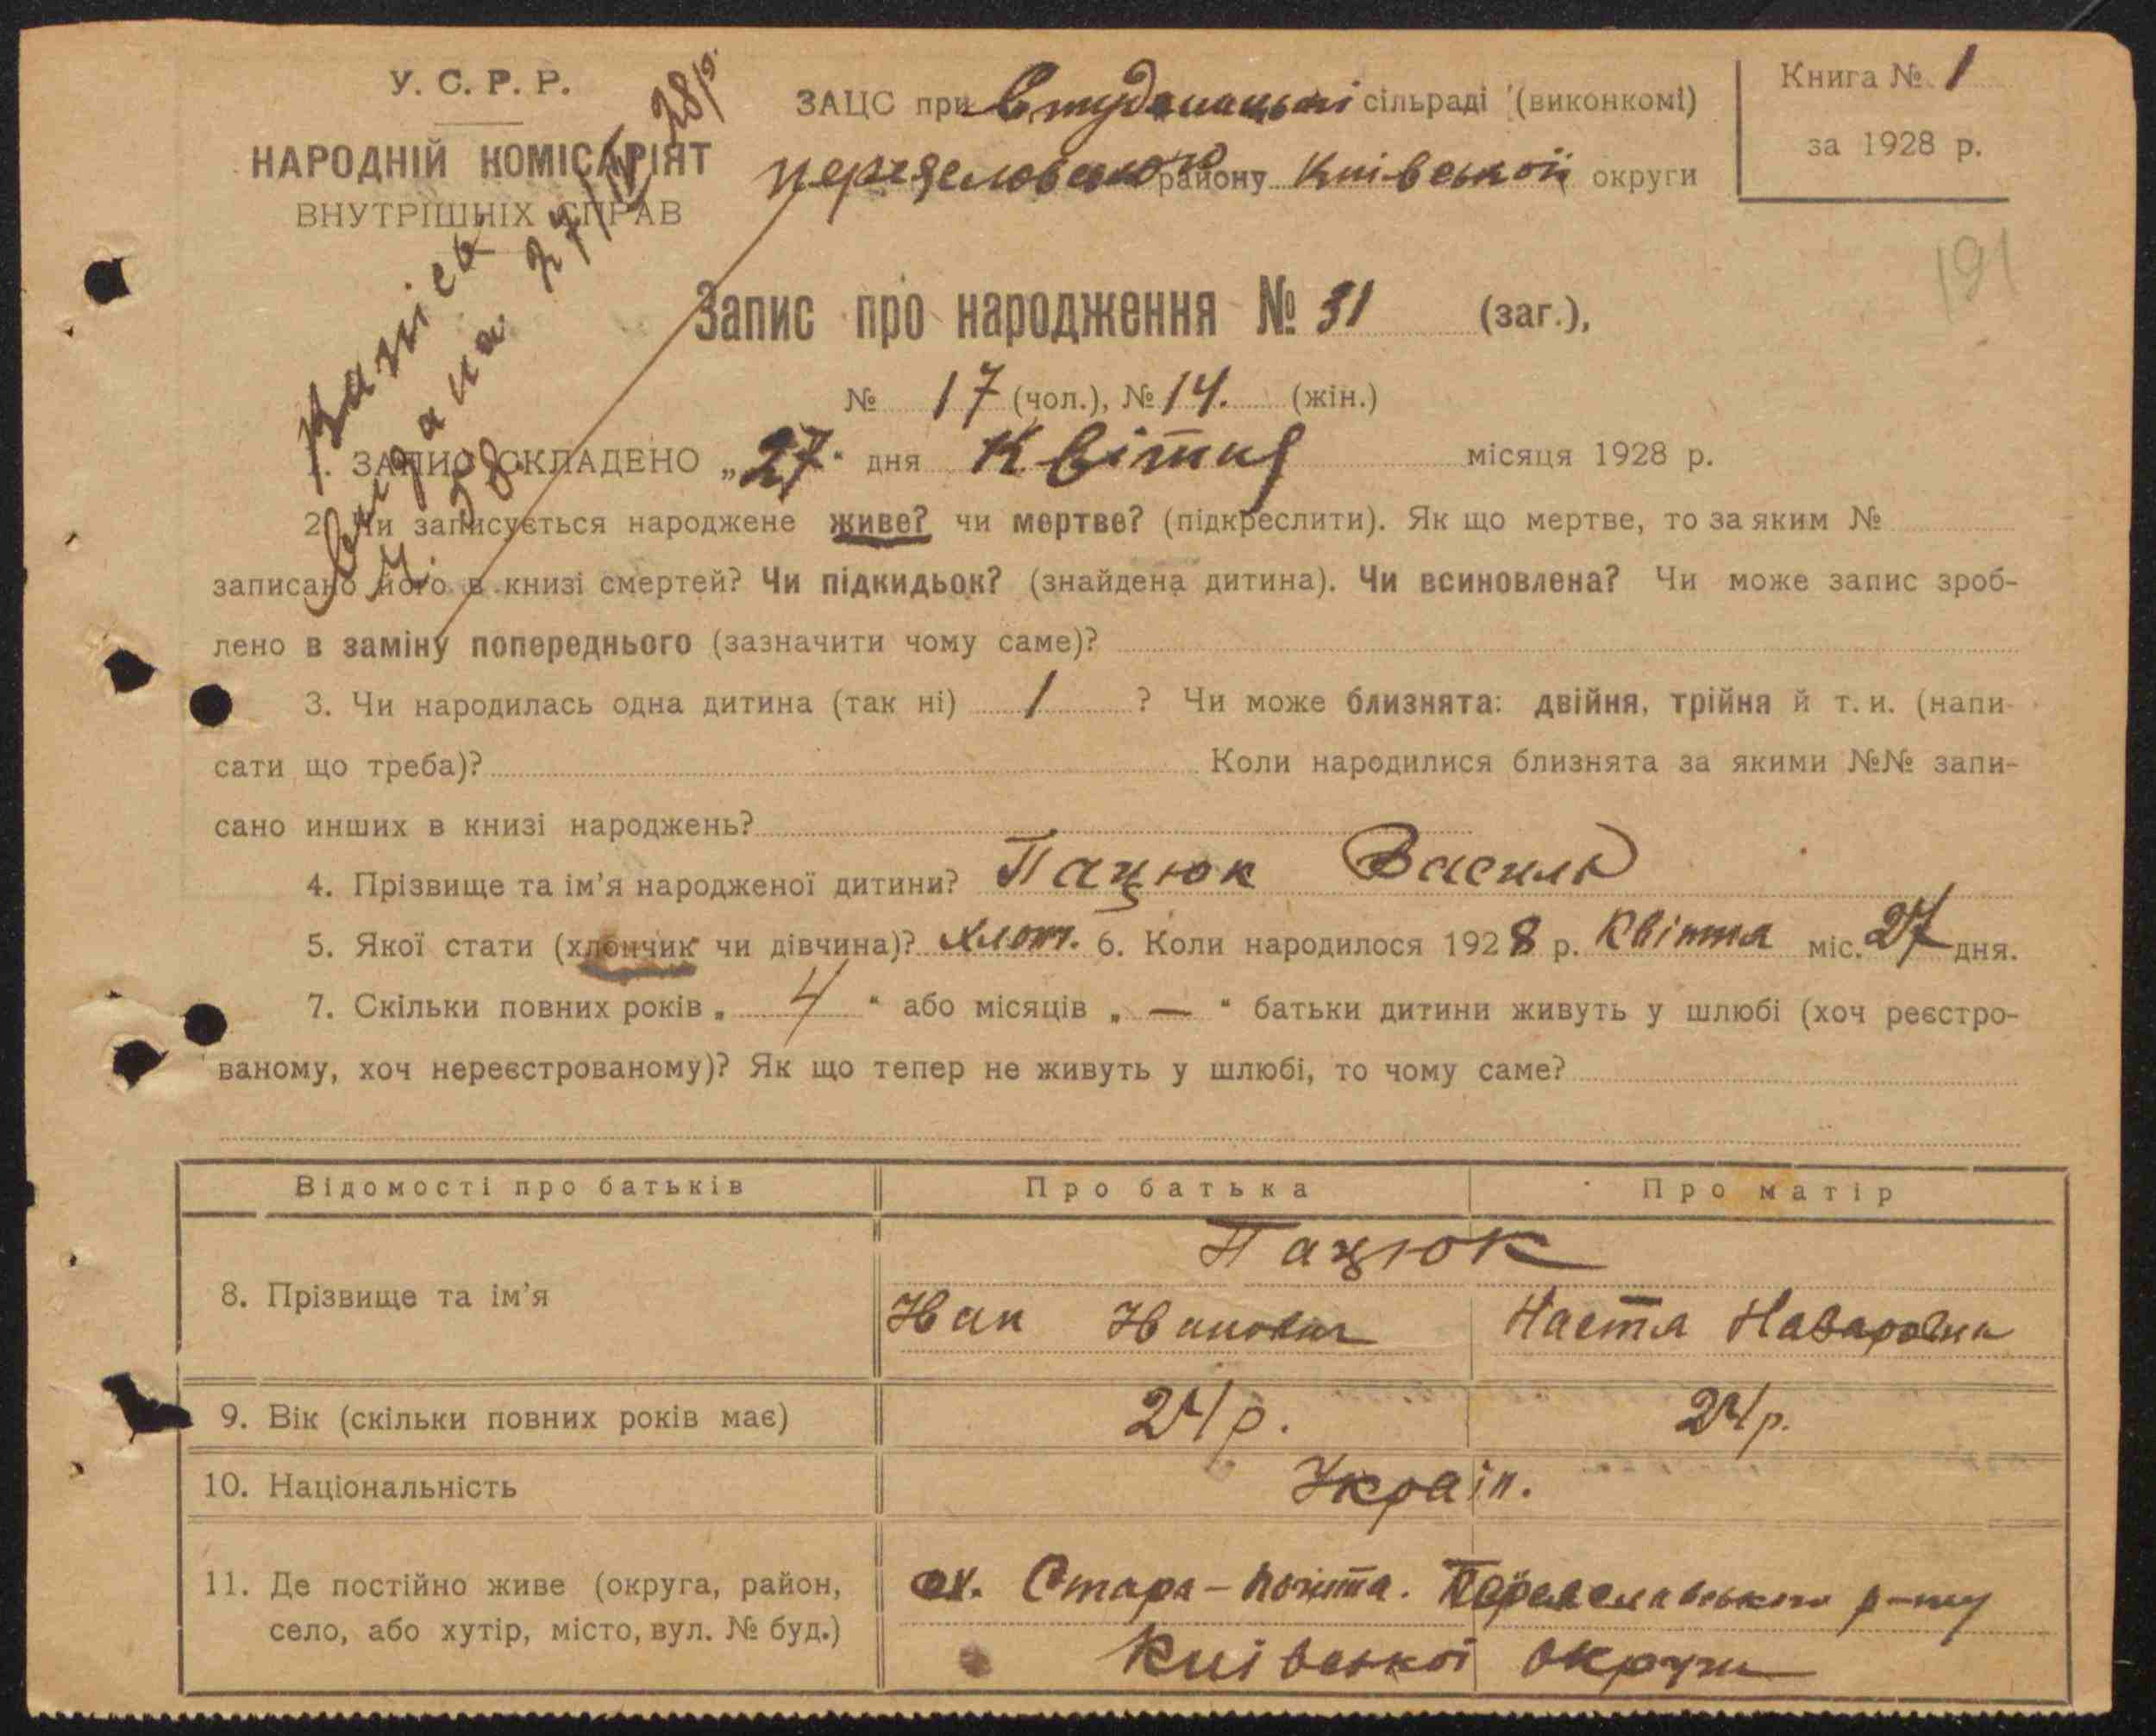 У. С. Р. Р.
НАРОДНІЙ КОМІСАРІЯТ
ВНУТРІШНІХ СПРАВ
ЗАЦС при сільраді (виконкомі)
району Київської округи
Книга № 1
за 1928 р.
191
27/IV 28 р.
Запис про народження № 31 (заг.),
№ 17 (чол.), № 14. (жін.)
1. ЗАПИС СКЛАДЕНО „27" дня Квітня місяця 1928 р.
2. Чи записується народжене живе? чи мертве? (підкреслити). Як що мертве, то за яким №
записано його в книзі смертей? Чи підкидьок? (знайдена дитина). Чи всиновлена? Чи може запис зроб-
лено в заміну попереднього (зазначити чому саме)?
3. Чи народилась одна дитина (так ні) 1 ? Чи може близнята: двійня, трійня й т. и. (напи-
сати що треба)? Коли народилися близнята за якими №№ запи-
сано инших в книзі народжень?
4. Прізвище та ім'я народженої дитини? Пацюк Василь
5. Якої стати (хлопчик чи дівчина)? хлоп. 6. Коли народилося 1928 р. Квітня міс. 27 дня.
7. Скільки повних років „ 4 " або місяців „ — " батьки дитини живуть у шлюбі (хоч реєстро-
ваному, хоч нереєстрованому)? Як що тепер не живуть у шлюбі, то чому саме?
Відомості про батьків Про батька Про матір
Пацюк
8. Прізвище та ім'я Іван Іванович Настя Назаровна
9. Вік (скільки повних років має) 24 р. 24 р.
10. Національність Україн.
11. Де постійно живе (округа, район, село, або хутір, місто, вул. № буд.) Стара-почта. Переяславського р-ну
Київської округи